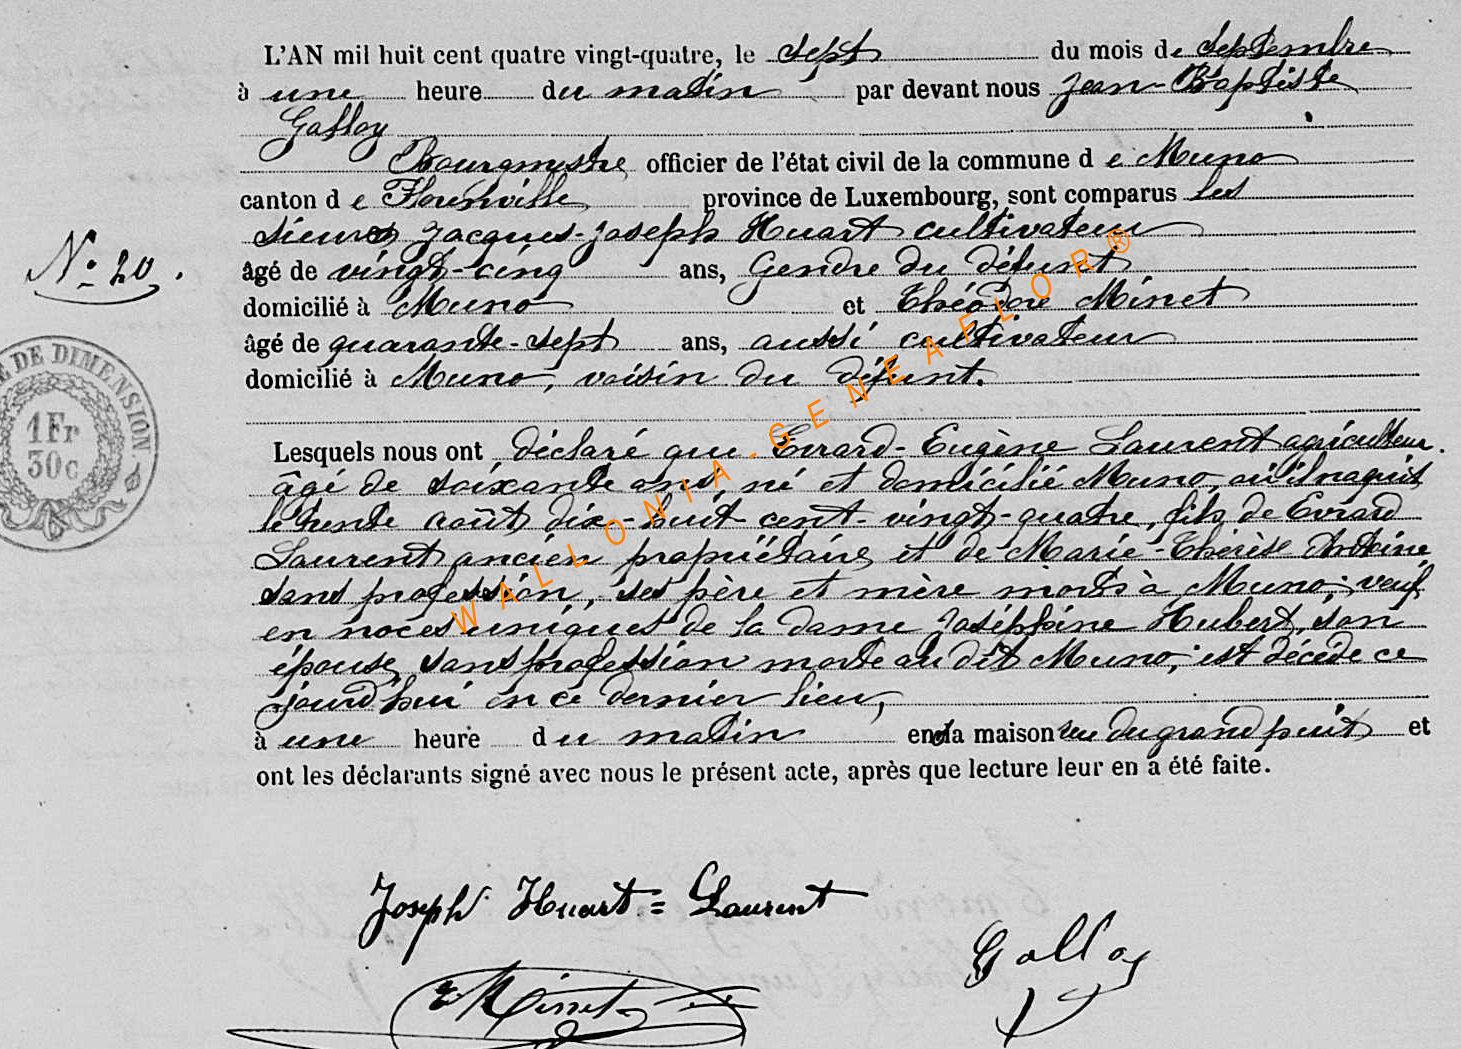 L'AN mil huit cent quatre vingt-quatre, le sept du mois de Septembre
à une heure du matin par devant nous Jean-Baptiste
Galloy
Bourgmestre officier de l'état civil de la commune d e Muno
canton d e Florenville province de Luxembourg, sont comparus les
sieurs Jacques-Joseph Huart cultivateur
âgé de vingt-cinq ans, Gendre du défunt
domicilié à Muno et Théodore Minet
âgé de quarante-sept ans, aussi cultivateur
domicilié à Muno, voisin du défunt.
N° 20.
E DE DIMENSION
1 Fr
30c
Lesquels nous ont déclaré que Evrard-Eugène Laurent agriculteur
âgé de soixante ans, né et domicilié Muno, où il naquit
le trente août dix-huit cent-vingt-quatre, fils de Evrard
Laurent ancien propriétaire et de Marie-Thérèse Antoine
sans profession, ses père et mère morts à Muno; veuf
en noces uniques de la dame Joséphine Hubert, son
épouse, sans profession morte au dit Muno; est décédé ce
jourd'hui en ce dernier lieu,
à une heure du matin en la maison rue du grand puit et
ont les déclarants signé avec nous le présent acte, après que lecture leur en a été faite.
WALLONIA-GENEAFLOR®
Joseph Huart = Laurent
Galloy
Minet